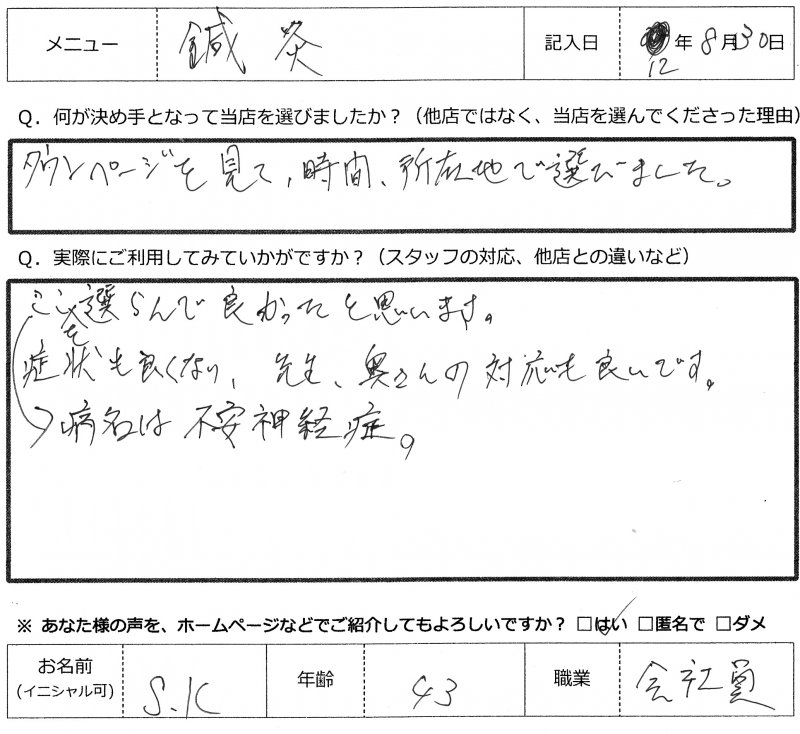 メニュー 鍼灸 記入日 12年8月30日
Q．何が決め手となって当店を選びましたか？（他店ではなく、当店を選んでくださった理由）
タウンページを見て、時間、所在地で選びました。
Q．実際にご利用してみていかがですか？（スタッフの対応、他店との違いなど）
ここを選らんで良かったと思います。
症状も良くなり、先生、奥さんの対応も良いです。
病名は不安神経症。
※ あなた様の声を、ホームページなどでご紹介してもよろしいですか？ □はい □匿名で □ダメ
お名前 S.K 年齢 43 職業 会社員
(イニシャル可)